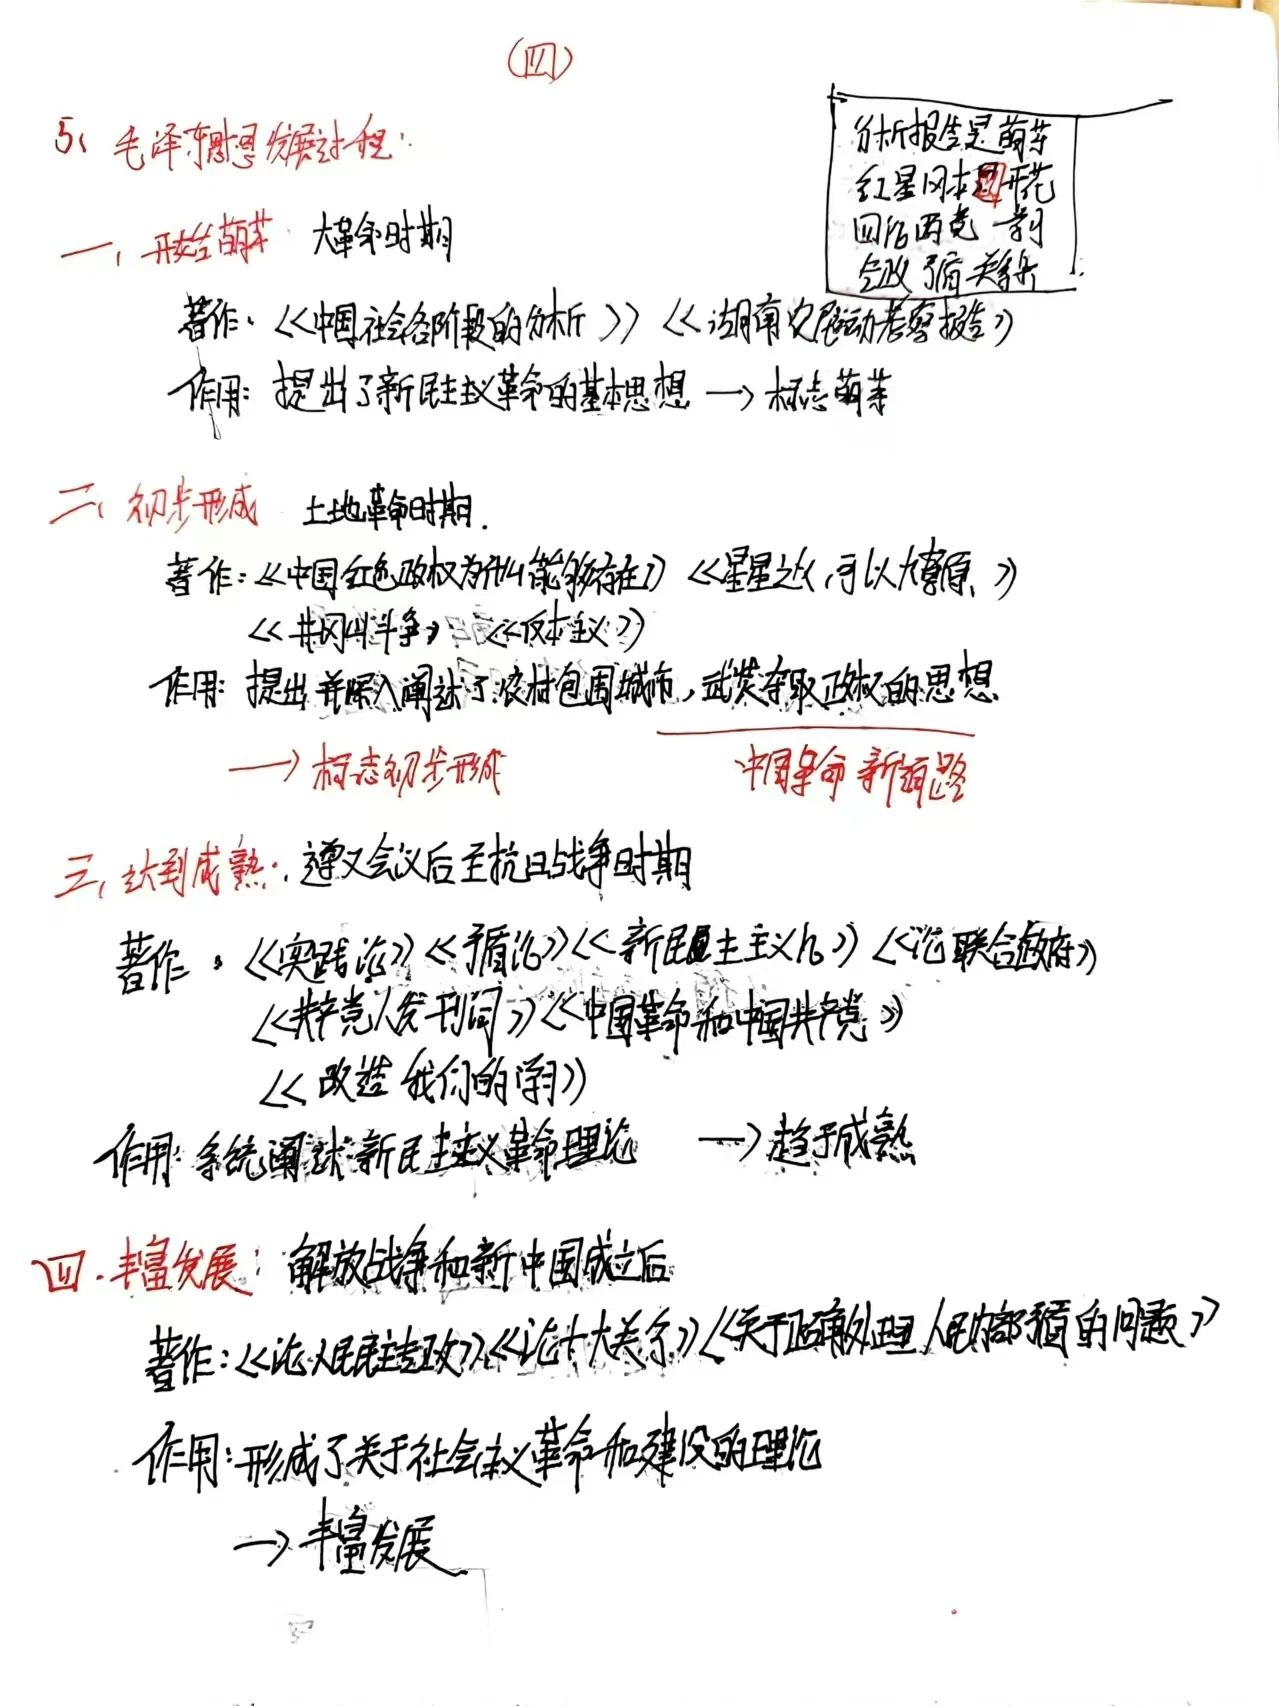 (四)
5、毛泽东思想发展过程:
分析报告是萌芽
红星冈本 开花
四论两党一学习
会政 盾关系
一、开始萌芽 大革命时期
著作:《中国社会各阶段的分析》《湖南农民运动考察报告》
作用:提出了新民主主义革命的基本思想→标志萌芽
二、初步形成 土地革命时期.
著作:《中国红色政权为什么能够存在》《星星之火,可以大燎原、》
《井冈山斗争》《反本主义》
作用:提出并深入阐述了农村包围城市,武装夺取政权的思想
→标志初步形成 中国革命新道路
三、达到成熟:遵义会议后至抗日战争时期
著作:《实践论》《矛盾论》《新民主主义论》《论联合政府》
《共产党人发刊词》《中国革命和中国共产党》
《改造我们的学习》
作用:系统阐述新民主主义革命理论 →趋于成熟
四.丰富发展:解放战争和新中国成立后
著作:《论人民民主专政》《论十大关系》《关于正确处理人民内部矛盾的问题》
作用:形成了关于社会主义革命和建设的理论
→丰富发展